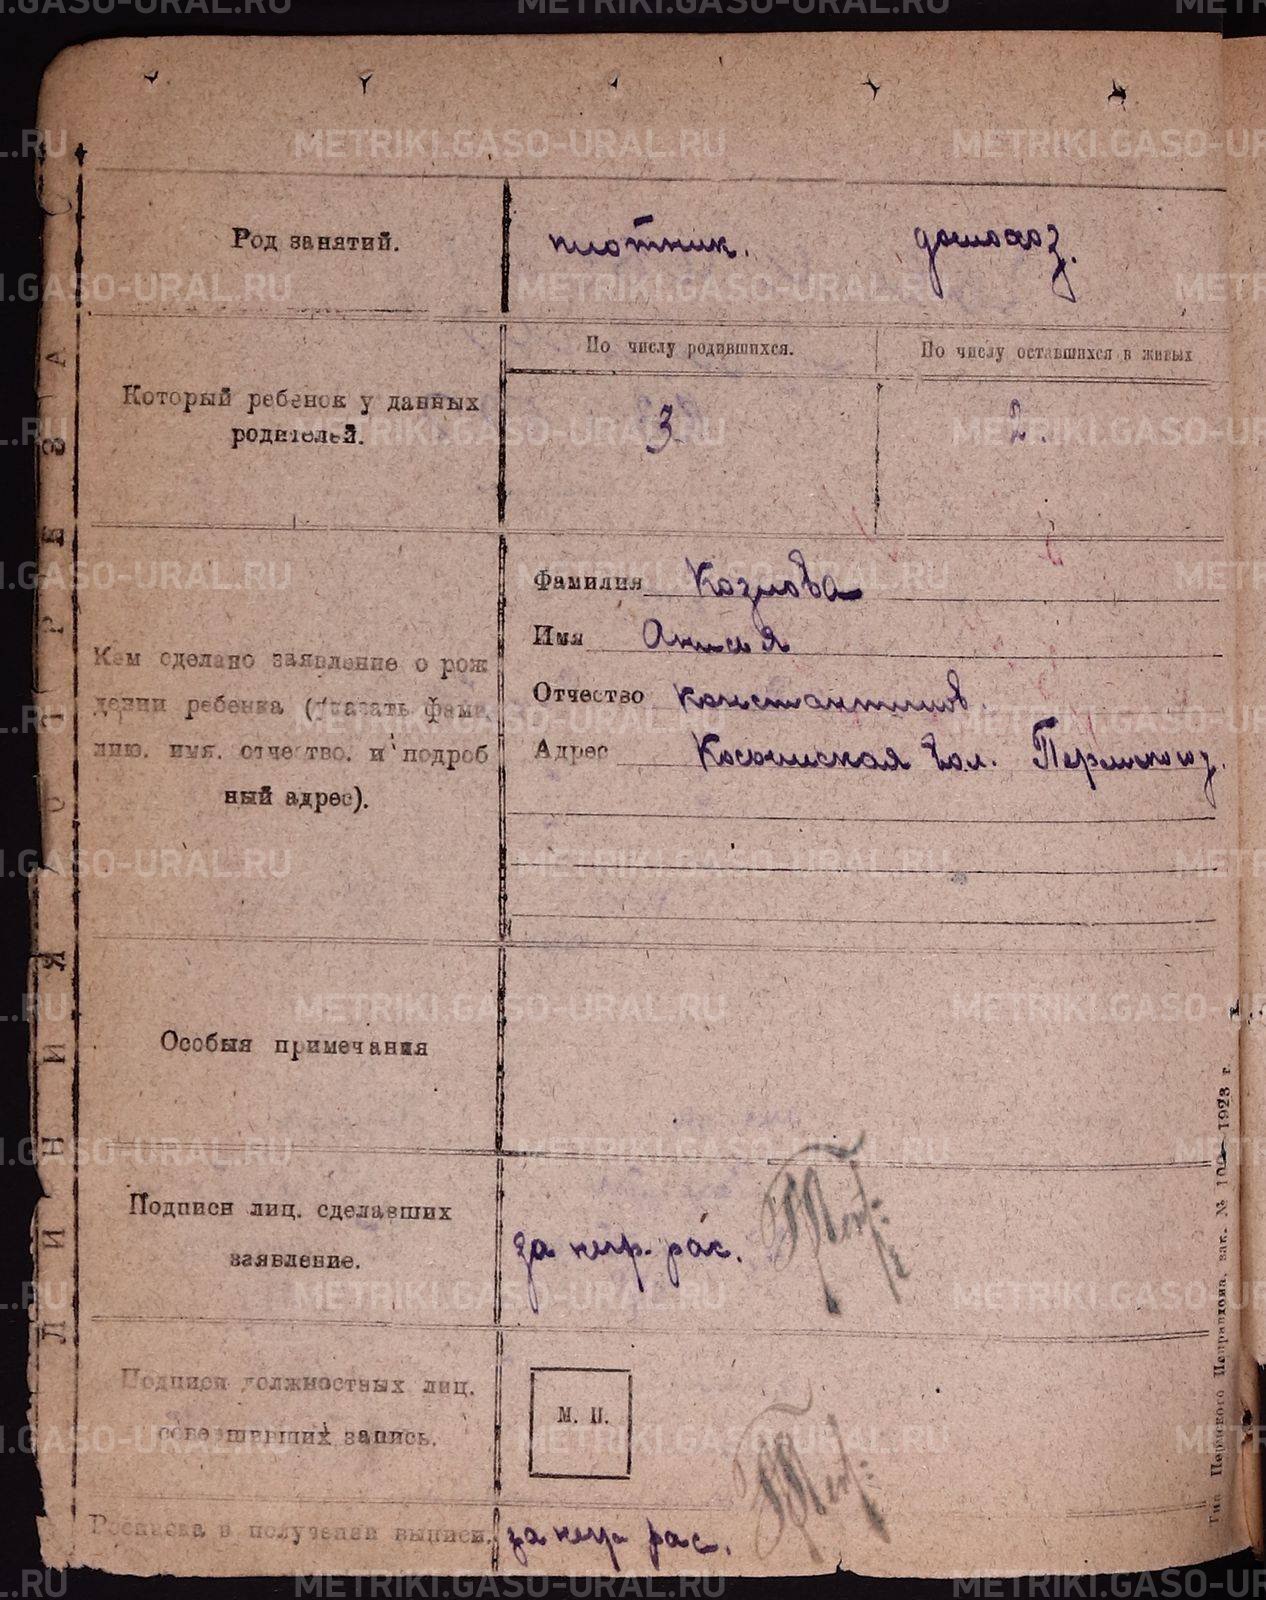 Род занятий.
плотник. домохоз.
По числу родившихся. По число оставшихся в живых
Который ребенок у данных
родителей.
3. 2.
Фамилия Козлова
Имя Анисья
Отчество Константинов.
Адрес вол. Пермског у.
Кем сделано заявление о рож
дении ребенка (указать фами
лию. имя. отчество. и подроб
ный адрес).
Особыя примечания
Подписи лиц. сделавших
заявление.
за негр. рас.
Подписи должностных лиц.
совершивших запись.
М. П.
Росписка в получении выписи.
за негр рас.
ЛИНИЯ ОТРЕЗА
Тип. Пермского Исправдома, зак. № 100—1923 г.
METRIKI.GASO-URAL.RU